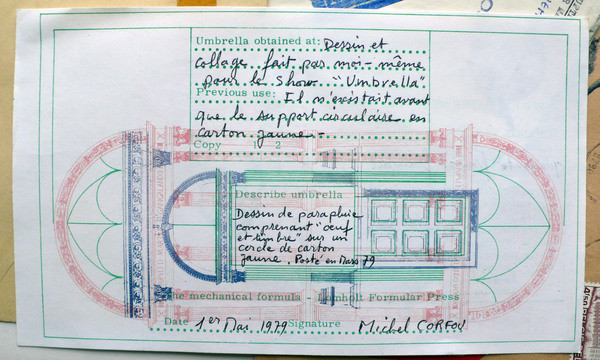 Umbrella obtained at: Dessin et
collage fait par moi-même
pour le Show "Umbrella"
Previous use: Il n'existait avant
que le support circulaire en
carton jaune -
Copy 1 2
Describe umbrella
Dessin de parapluie
comprenant "oeuf
et timbre" sur un
cercle de carton
jaune. Posté en Mars 79
The mechanical formula - Lomholt Formular Press
Date 1er Mai 1979 Signature Michel CORFOU